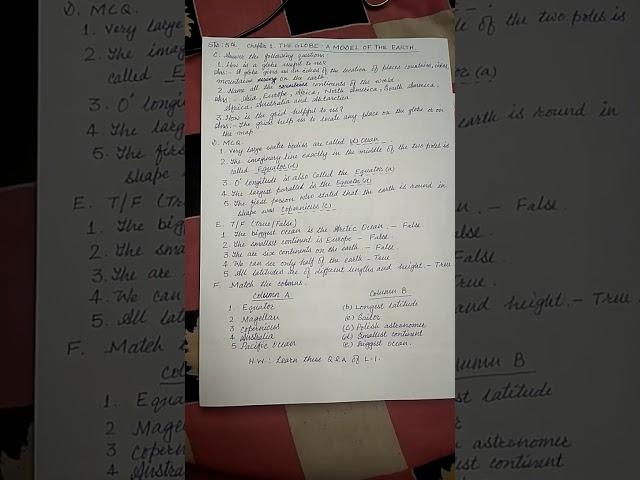 Std: 5th. Chapter 1. THE GLOBE: A MODEL OF THE EARTH
C. Answer the following questions:
1. How is a globe useful to us?
Ans:- A globe gives us an idea of the location of places, countries, cities,
mountains on the earth.
2. Name all the continents of the world.
Ans:- Asia, Europe, Africa, North America, South America,
Africa, Australia and Antarctica.
3. How is the grid helpful to us?
Ans:- The grids help us to locate any place on the globe or on
the map.
D. MCQ.
1. Very large water bodies are called (d) ocean.
2. The imaginary line exactly in the middle of the two poles is
called Equator(d)
3. 0° longitude is also called the Equator(a)
4. The largest parallel is the Equator(a)
5. The first person who stated that the earth is round in
shape was Copernicus (c)
E. T/F (True/False)
1. The biggest ocean is the Arctic Ocean. - False
2. The smallest continent is Europe - False.
3. The are six continents on the earth - False.
4. We can see only half of the earth - True.
5. All latitudes are of different lengths and height. - True
F. Match the colums.
Column A Column B
1. Equator (b) Longest latitude
2 Magellan (a) Sailor
3 Copernicus (c) Polish astronomer
4 Australia (d) Smallest continent
5 Pacific Ocean (e) Biggest ocean.
H.W: Learn these Q & A of L-1.